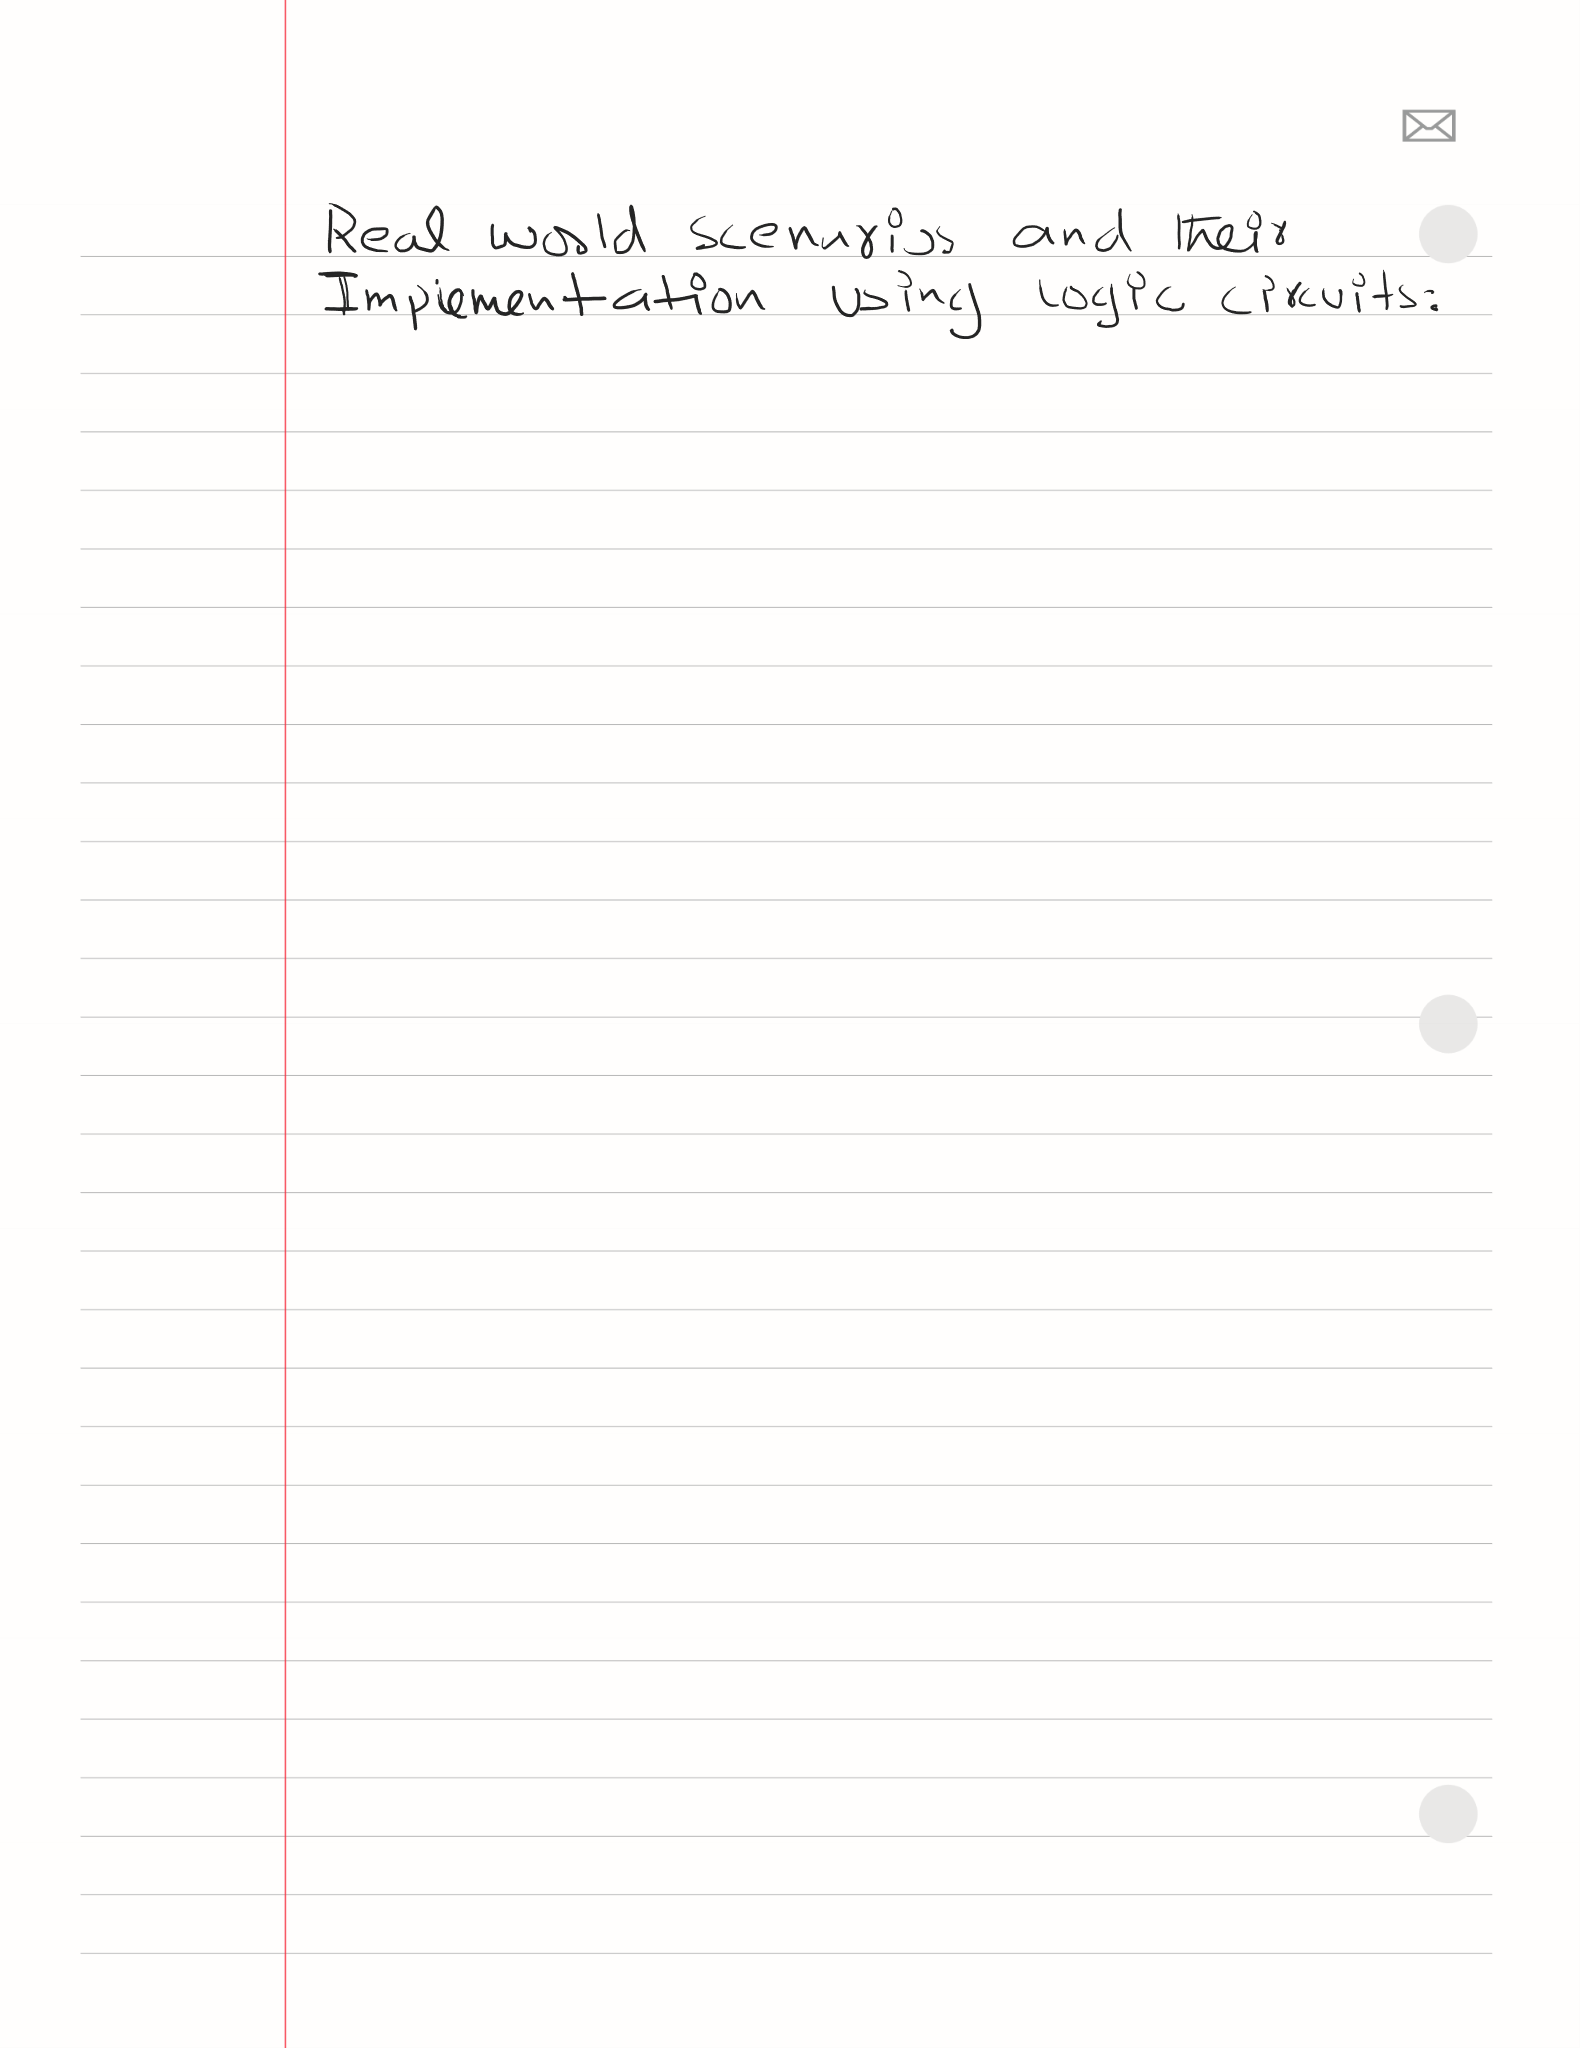 Real world scenarios and their
Implementation using logic circuits: